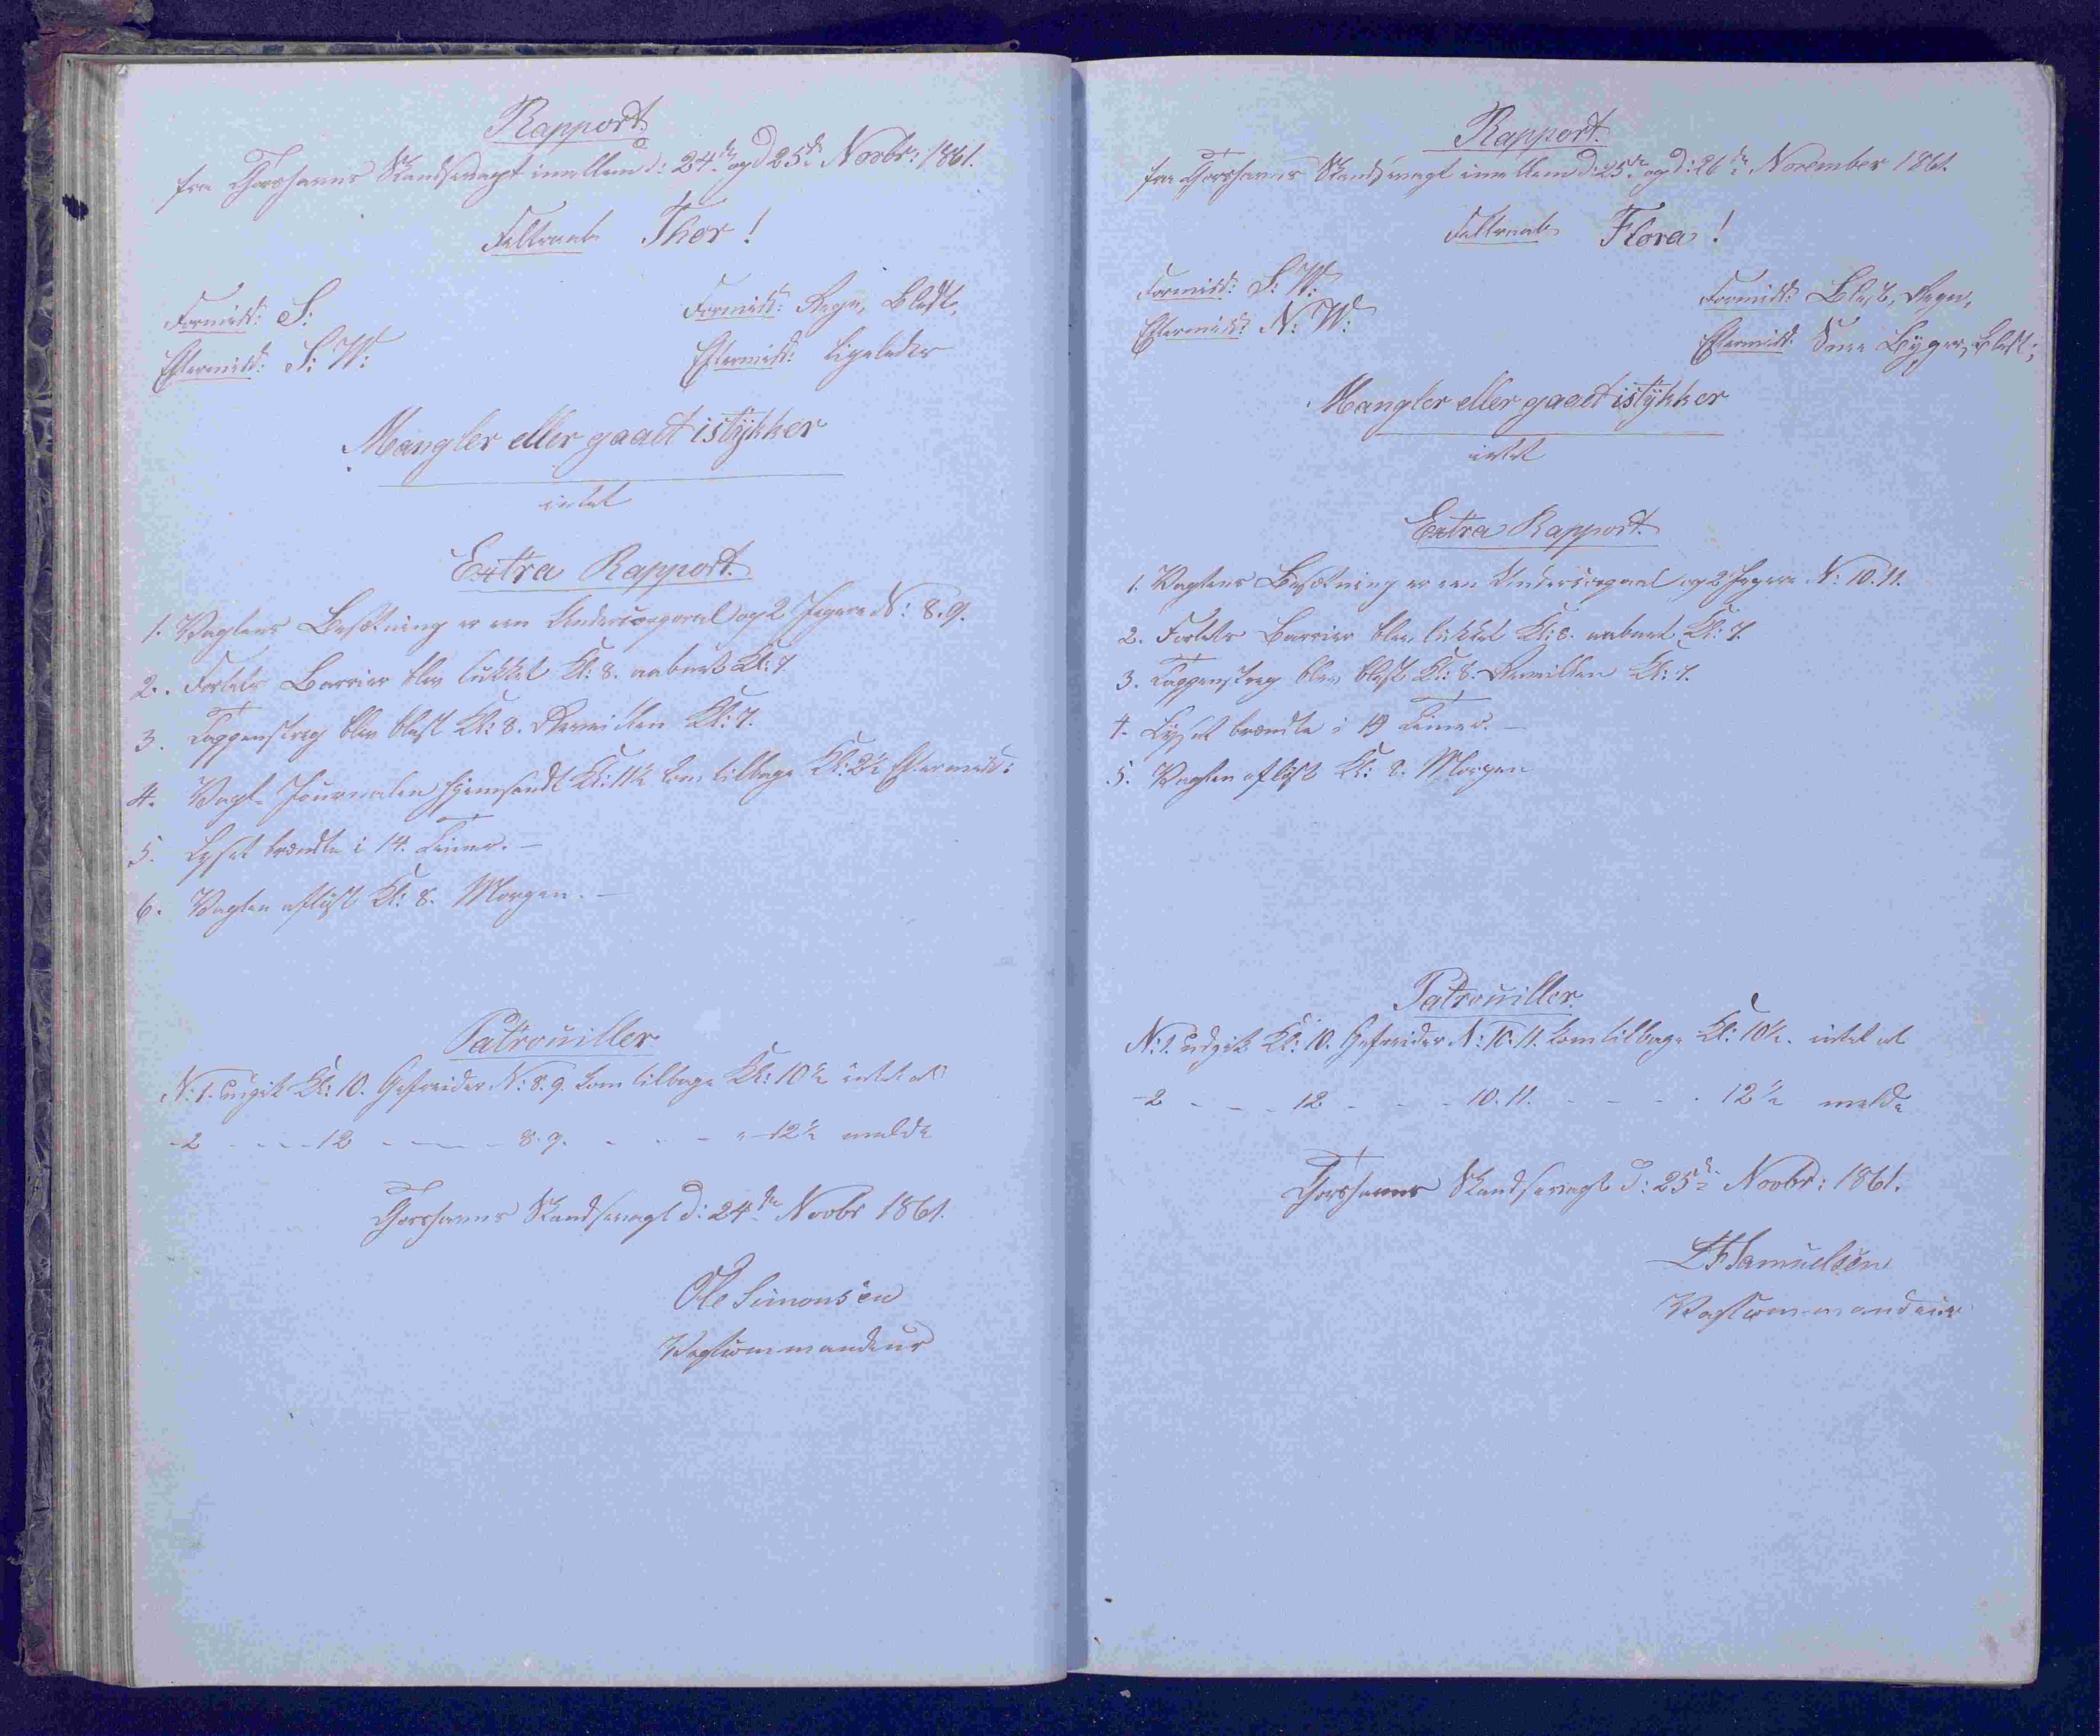 Rapport
fra Thorshavns Skandsevagt imellem d: 24de og d 25de Novbr: 1861.
Feltraab Thor!
Formidd: S:
Formidd: Regn, Blæst,
Eftermidd: S: W:
Eftermidd: ligeledes
Mangler eller gaaet istÿkker
intet
Extra Rapport.
1. Vagtens Besætning er een Undercorporal og 2 Jægere N: 8. 9.
2. Fortets Barrier blev lukket Kl: 8. aabnet Kl: 7
3. Tappenstreg blev blæst Kl: 8. Reveillen Kl: 7.
4. Vagt-Journalen hjemsendt Kl: 11½ kom tilbage Kl: 2½ Eftermidd:
5. Lyset brændte i 14. Timer. –
6. Vagten afløst Kl: 8. Morgen. –
Patrouiller
N: 1. udgik Kl: 10. Gefreider N: 8. 9. kom tilbage Kl: 10½ intet at
- 2 - - - 12 - - - 8. 9. - - - - 12½ melde
Thorshavns Skandsevagt d: 24de Novbr 1861.
Ole Simonsen
Vagtcommandeur
Rapport.
fra Thorshavns Skandsevagt imellem d: 25de og d: 26de November 1861.
Feltraab Flora!
Formidd: S: W:
Formidd: Blæst, Regn,
Eftermidd: N: W:
Eftermidd: Snee Bÿger, Blæst;
Mangler eller gaaet istÿkker
intet
Extra Rapport.
1. Vagtens Besætning er een Undercorporal og 2 Jægere N: 10. 11.
2. Fortets Barrier blev lukket Kl: 8. aabnet Kl: 7.
3. Tappenstreg blev blæst Kl: 8. Reveillen Kl: 7.
4. Lyset brændte i 14 Timer. –
5. Vagten afløst Kl: 8. Morgen
Patrouiller
N: 1. udgik Kl: 10. Gefreider N: 10. 11. kom tilbage Kl: 10½. intet at
- 2 - - - 12 - - - 10. 11. - - - - 12½ melde
Thorshavns Skandsevagt d: 25de Novbr: 1861.
Samuelsen
Vagtcommandeur